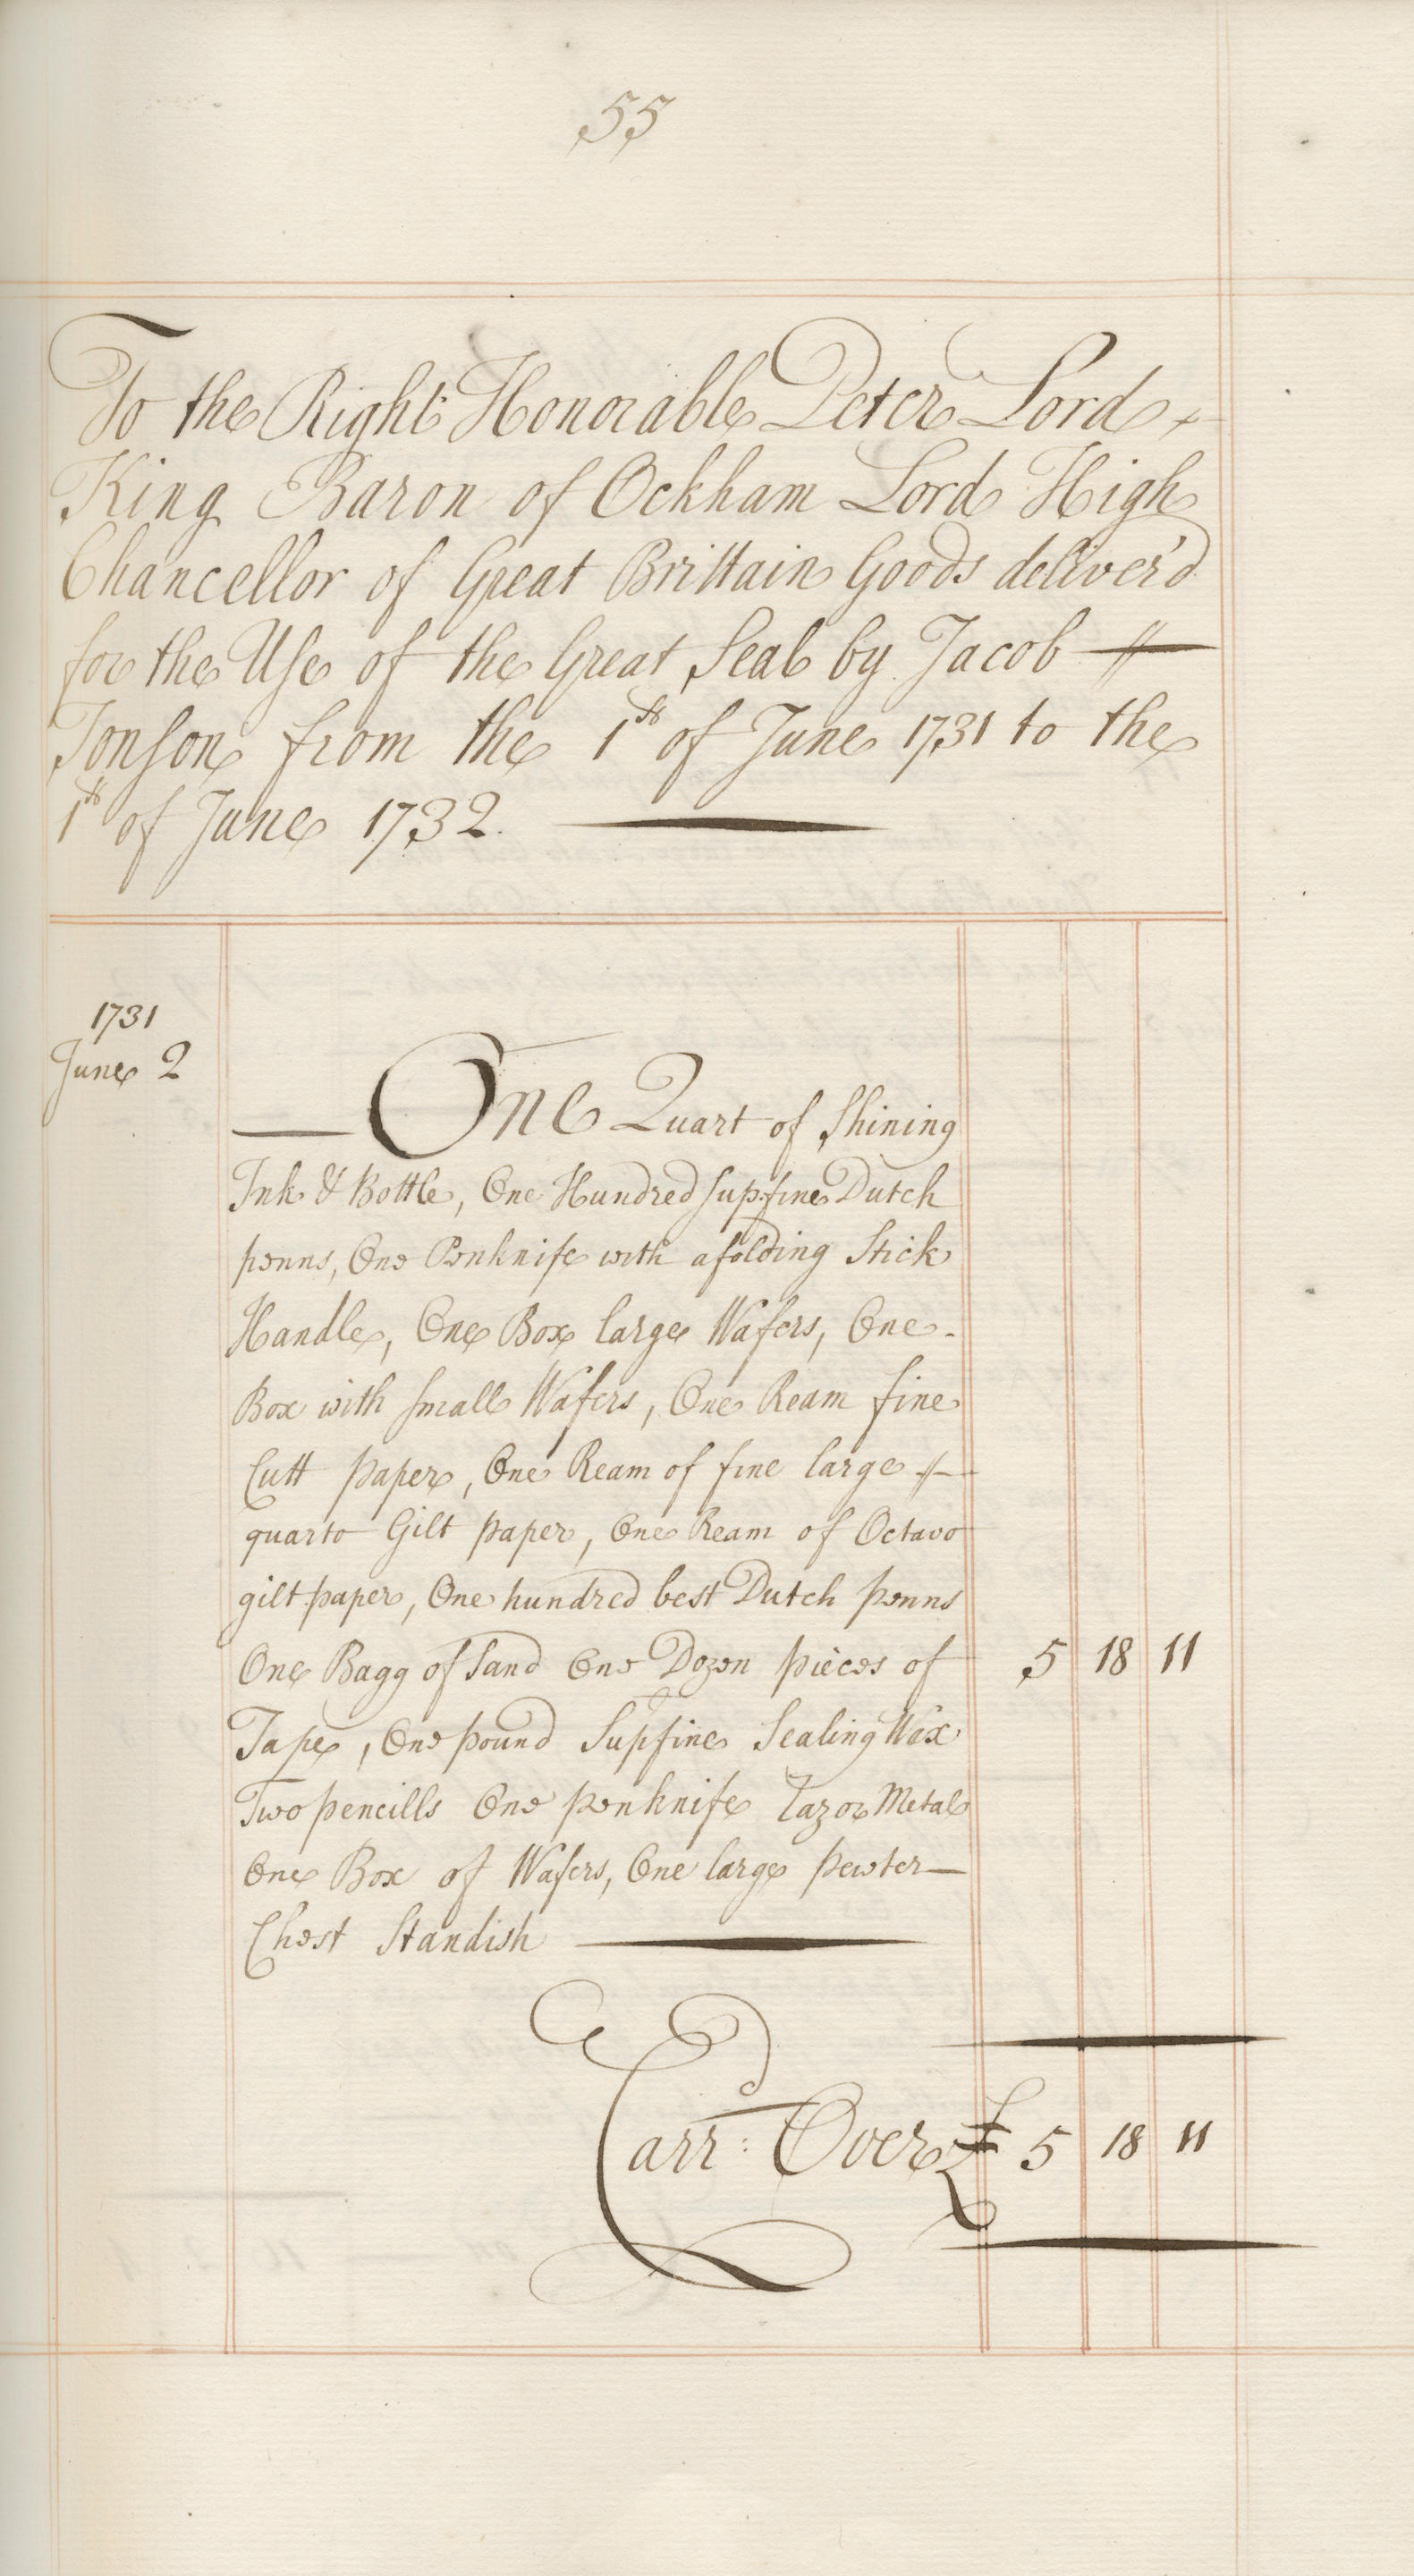 55
To the Right Honorable Peter Lord
King Baron of Ockham Lord High
Chancellor of Great Brittain Goods deliver'd
for the Use of the Great Seal by Jacob
Tonson from the 1st of June 1731 to the
1st of June 1732.
1731
June 2
One Quart of Shining
Ink & Bottle, One Hundred supfine Dutch
penns, One Penknife with a folding Stick
Handle, One Box large Wafers, One
Box with small Wafers, One Ream fine
Cutt paper, One Ream of fine large
quarto Gilt paper, One Ream of Octavo
gilt paper, One hundred best Dutch penns
One Bagg of Sand One Dozen pieces of 5 18 11
Tape, One pound Supfine Sealing Wax
Two pencills One penknife razor Metal
One Box of Wafers, One large pewter
Chest Standish
Carrd: Over £ 5 18 11